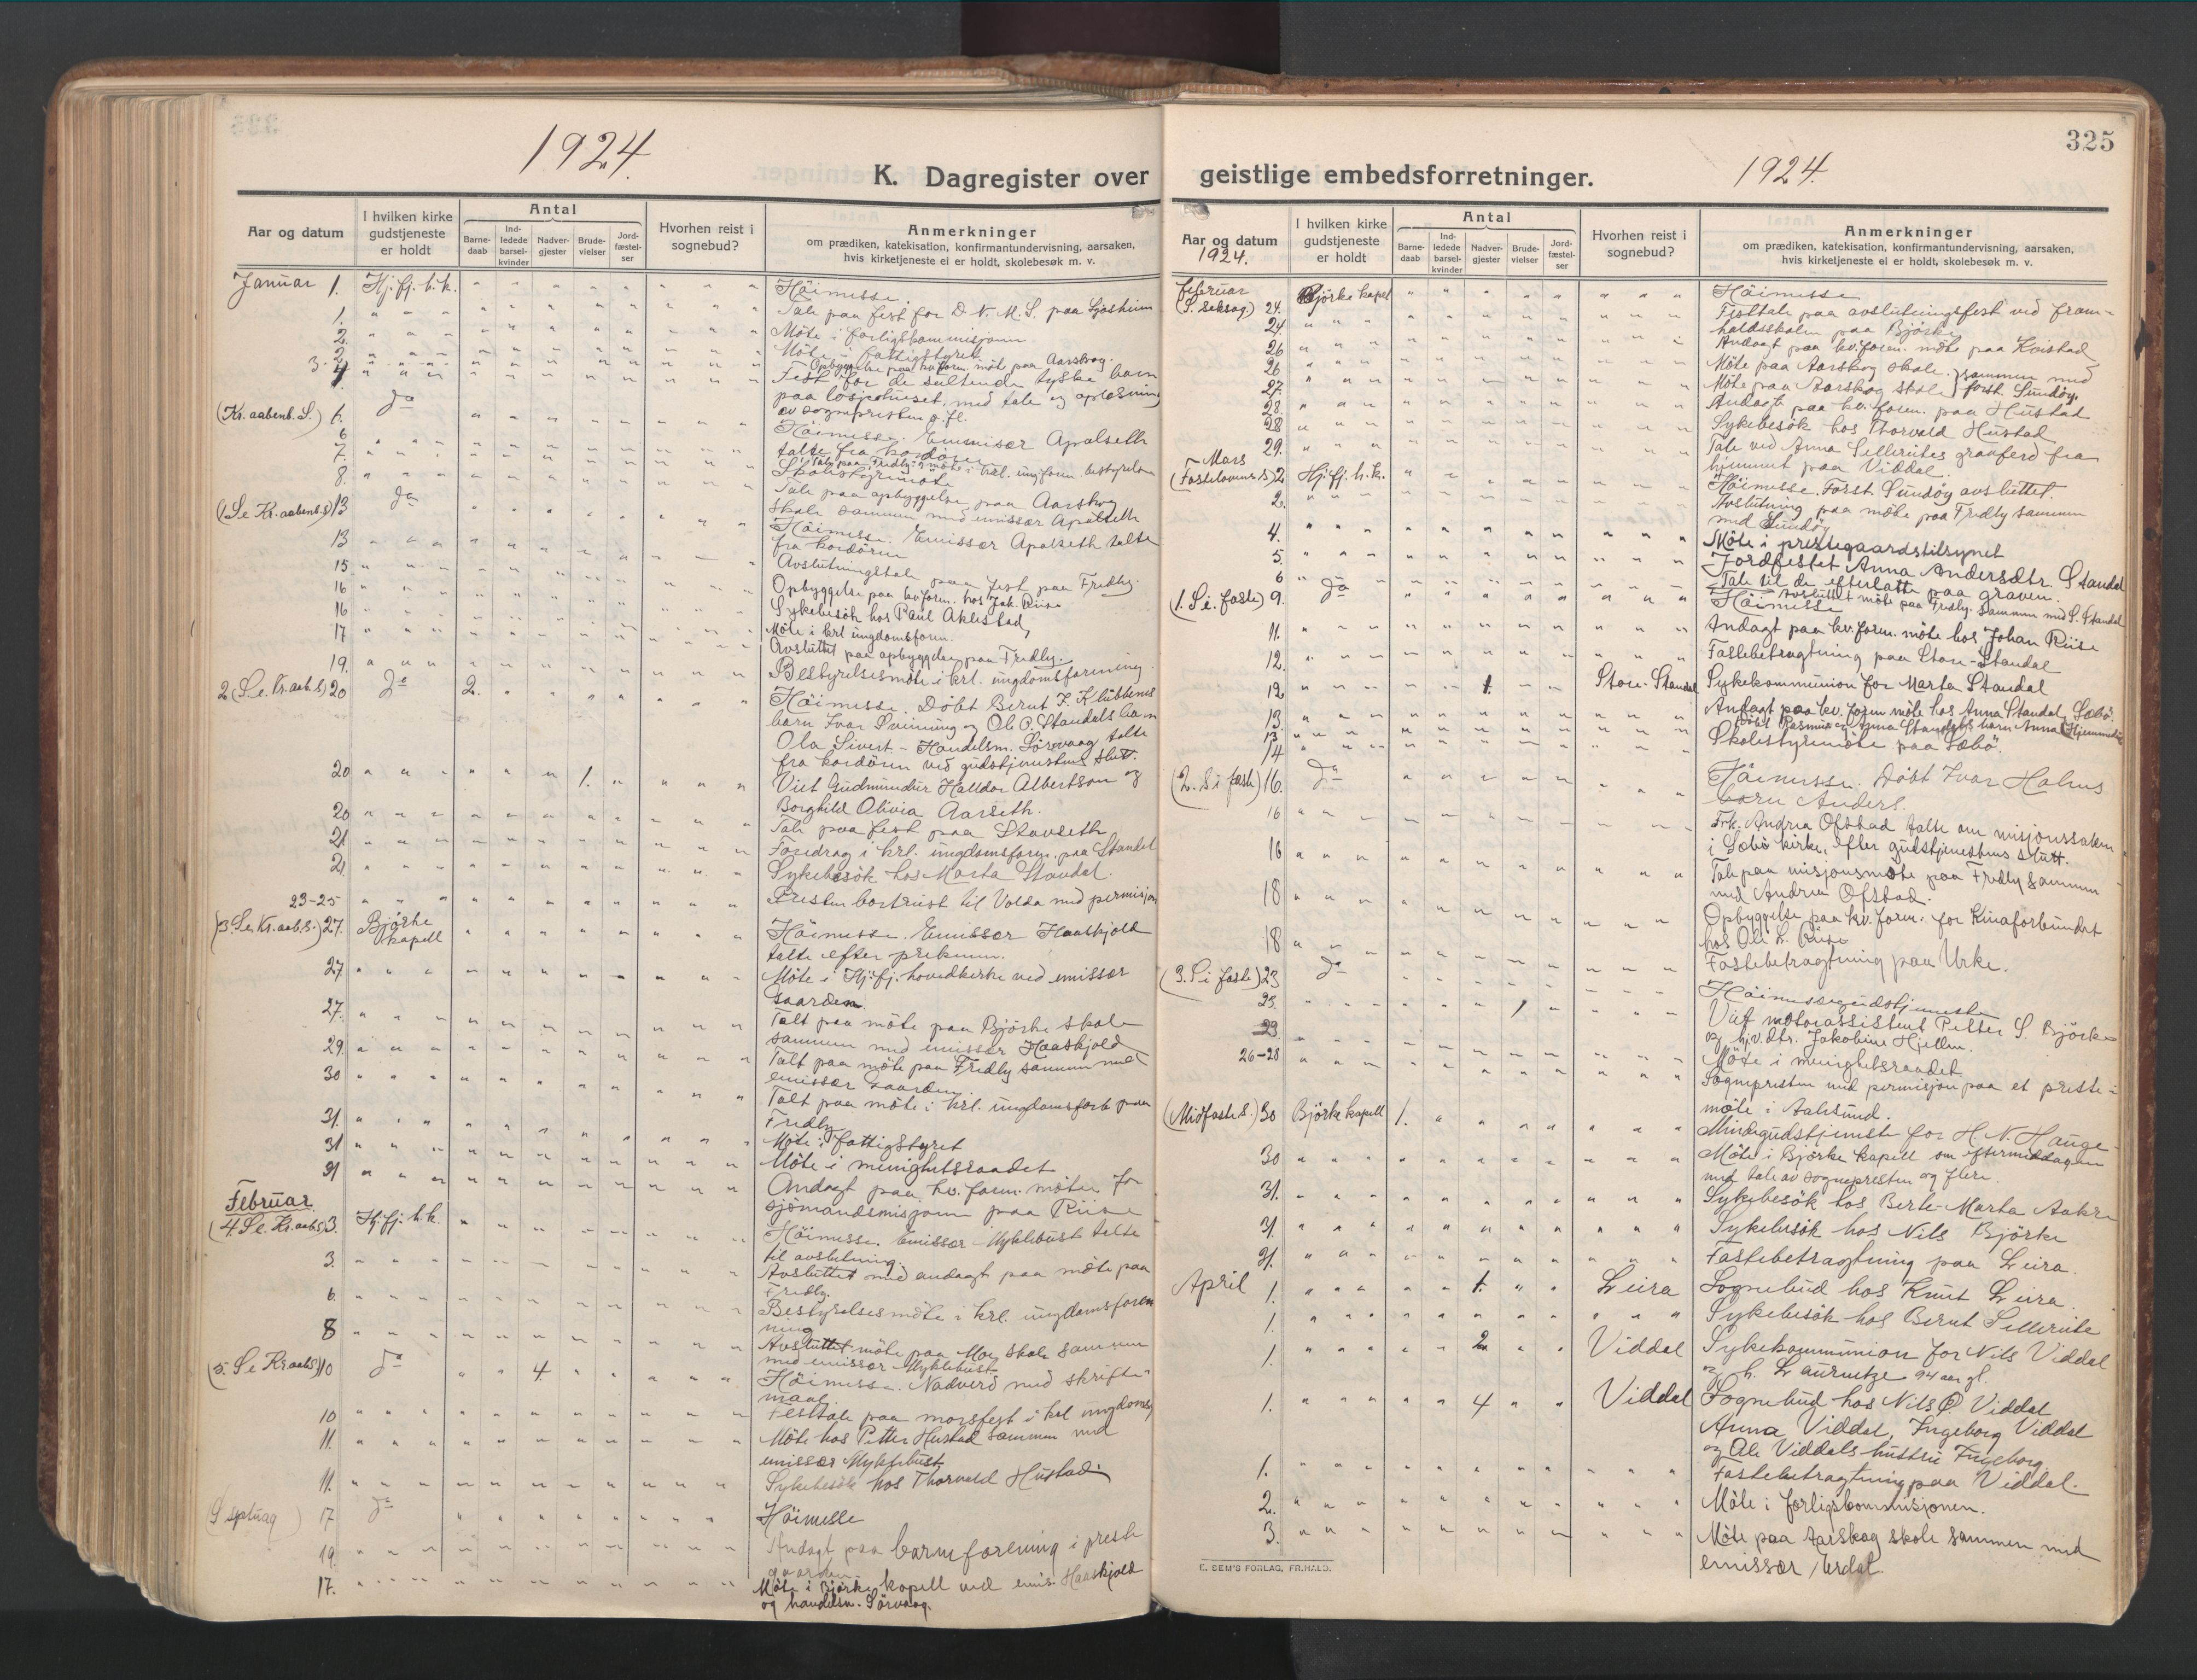 1924.
K. Dagregister over
Aar og datum
I hvilken kirke gudstjeneste er holdt
Antal
Barnedaab
Indledede barselkvinder
Nadvergjester
Brudevielser
Jordfæstelser
Hvorhen reist i sognebud?
Anmerkninger
om prædiken, katekisation, konfirmantundervisning, aarsaken,
hvis kirketjeneste ei er holdt, skolebesøk m. v.
Januar 1. Hj.fj. h.k. Höimesse.
1. Tale paa fest for D.N.M.S. paa Sjøheim
2. Möte i forligskommisjonen
2. Möte i fattigstyret
3. Opbyggelse paa kv.foren. möte paa Aarskog.
4. Fest for de sultende tyske barn
paa losjehuset, med tale og oplæsning
av sognepresten o.fl.
(Kr. aabenb. S.) 6. do Höimesse. Emissær Apalseth
talte fra kordören
6 Tale paa Fredly: möte i krl. ungforen. bestyrelse
7. Skolestyremöte
8. Tale paa opbyggelse paa Aarskog
skole sammen med emissær Apalseth
(1 S e Kr. aabenb. S) 13 do Höimesse. Emissær Apalseth talte
fra kordören
13 Avslutningstale paa fest paa Fredly.
15 Opbyggelse paa kv.foren. hos Jak. Riise
16 Sykebesök hos Paul Aklestad
16 Möte i krl ungdomsforen.
17 Avsluttet paa opbyggelse paa Fredly.
19. Bestyrelsesmöte i krl. ungdomsforening.
2 (S. e. Kr. aab. S) 20 do 2. Höimesse. Döbt Bernt J. Klubbenes
barn Ivar Svinning og Ole P. Standals barn
Ola Sivert - Handelsm. Sörvaag talte
fra kordören ved gudstjenestens slut.
20 1. Viet Gudmundur Halldor Albertson og
Borghild Olivia Aarseth.
20 Tale paa fest paa Stavseth
21 Foredrag i krl. ungdomsforen. paa Standal
21. Sykebesök hos Marta Standal.
23-25 Presten bortreist til Volda med permisjon
(3. S e. Kr. aab. S.) 27. Björke kapell Höimesse. Emissær Haaskjold
talte efter prekenen.
27 Möte i Hj.fj. hovedkirke ved emissær
Gaarden.
27. Talt paa möte paa Björke skole
sammen med emissær Haaskjold
29. Talt paa möte paa Fredly sammen med
emissær Gaarden.
30 Talt paa möte i krl. ungdomsforb paa
Fredly
31. Möte i fattigstyret
31 Möte i menighetsraadet
31 Andagt paa kv. foren. möte for
sjömandsmisjonen paa Riise
Februar
(4 S e. Kr. aab. S) 3. Hj.fj. h.k. Höimesse. Emissær Myklebust talte
til avslutning.
3. Avsluttet med andagt paa möte paa
Fredly.
6. Bestyrelsesmöte i krl. ungdomsforen
ning
8 Avsluttet möte paa Moe skole sammen
med emissær Myklebust
(5. S e Kr aab S) 10 do 4. Höimesse. Nadverd med skrifte-
maal.
10 Festtale paa morsfest i krl ungdoms
11. Möte hos Petter Hustad sammen med
emissær Myklebust
11. Sykebesök hos Thorvald Hustad.
(S septuag) 17 do Höimesse
19. Andagt paa barneforening i preste
gaarden
17. Möte i Björke kapell ved emis. Haaskjold
og handelsm. Sörvaag.
325
geistlige embedsforretninger.
1924.
Aar og datum
1924.
I hvilken kirke gudstjeneste er holdt
Antal
Barnedaab
Indledede barselkvinder
Nadvergjester
Brudevielser
Jordfæstelser
Hvorhen reist i sognebud?
Anmerkninger
om prædiken, katekisation, konfirmantundervisning, aarsaken,
hvis kirketjeneste ei er holdt, skolebesøk m. v.
Februar
(S. seksag.) 24. Björke kapel Höimesse
24. Festtale paa avslutningsfest ved fram-
haldsskolen paa Björke
26 Andagt paa kv.foren. möte paa Kvistad
26 Möte paa Aarskog skole
27. Möte paa Aarskog skole } sammen med forst. Sundöy.
28. Andagt paa kv. foren. paa Hustad
28 Sykebesök hos Thorvald Hustad
29. Tale ved Anna Sellereites graaferd fra
hjemmet paa Viddal.
Mars
(Fastelavens S) 2 Hj.fj. h.k. Höimesse. Forst. Sundöy avsluttet.
2. Avslutning paa möte paa Fredly sammen
med Sundöy
4. Möte i prestegaardstilsynet
5. Jordfestet Anna Andersdtr. Standal
Tale til de efterlatte paa graven.
6 Avsluttet möte paa Fredly sammen med S. Standal
(1. S i. faste) 9. do Höimesse
11. Andagt paa kv.foren. möte hos Johan Riise
12. Fastebetragtning paa Store-Standal
12. 1. Store-Standal Sykekommunion for Marta Standal
13. Andagt paa kv. foren möte hos Anna Standal, Sæbö.
13. Döbt Rasmus og Anna Standals barn Anna (Hjemmedöbt)
14 Skolestyremöte paa Sæbö.
(2. S i faste) 16. do Höimesse. Döbt Ivar Holens
barn Anders.
16 Frk. Andrea Ofstad talte om misjonssaken
i Sæbö kirke, efter gudstjenestens slutt.
16 Tale paa misjonsmöte paa Fredly sammen
med Andrea Ofstad.
18 Opbyggelse paa kv. foren. for Kinaforbundet
hos Ole L. Riise
18 Fastebetragtning paa Urke.
(3. S i faste) 23 do Höimessegudstjeneste
23. 1 Viet motorassistent Petter S. Björke
og hj.v.dtr. Jakobine Hjellen.
23 Möte i menighetsraadet.
26-28 Sognepresten med permisjon paa et preste-
möte i Aalesund.
(Midfaste S.) 30 Björke kapell 1. Mindegudstjeneste for H. N. Hauge.
30 Möte i Björke kapell om eftermiddagen
med tale av sognepresten og flere.
31. Sykebesök hos Berte-Marta Aakre
31 Sykebesök hos Nils Björke
31. Fastebetragtning paa Leira.
April 1. 1. Leira Sognebud hos Knut Leira.
1. Sykebesök hos Bernt Sellereite
1. 2. Viddal Sykekommunion for Nils Viddal
og h. Laurentze 94 aar gl.
1. 4 Viddal Sognebud hos Nils P. Viddal
Anna Viddal, Ingeborg Viddal
og Ole Viddals hustru Ingeborg.
1. Fastebetragtning paa Viddal.
2. Möte i forligskommisjonen.
3. Möte paa Aarskog skole sammen med
emissær Urdal.
E. SEM'S FORLAG, FR.HALD.